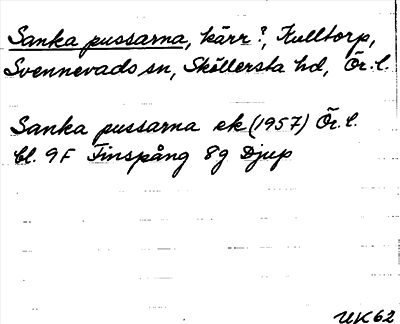 Sanka pussarna, kärr?, Kulltorp,
Svennevads sn, Sköllersta hd, Ör. l.
Sanka pussarna ek (1957) Ör. l.
bl. 9F Finspång 8g Djup
UK62